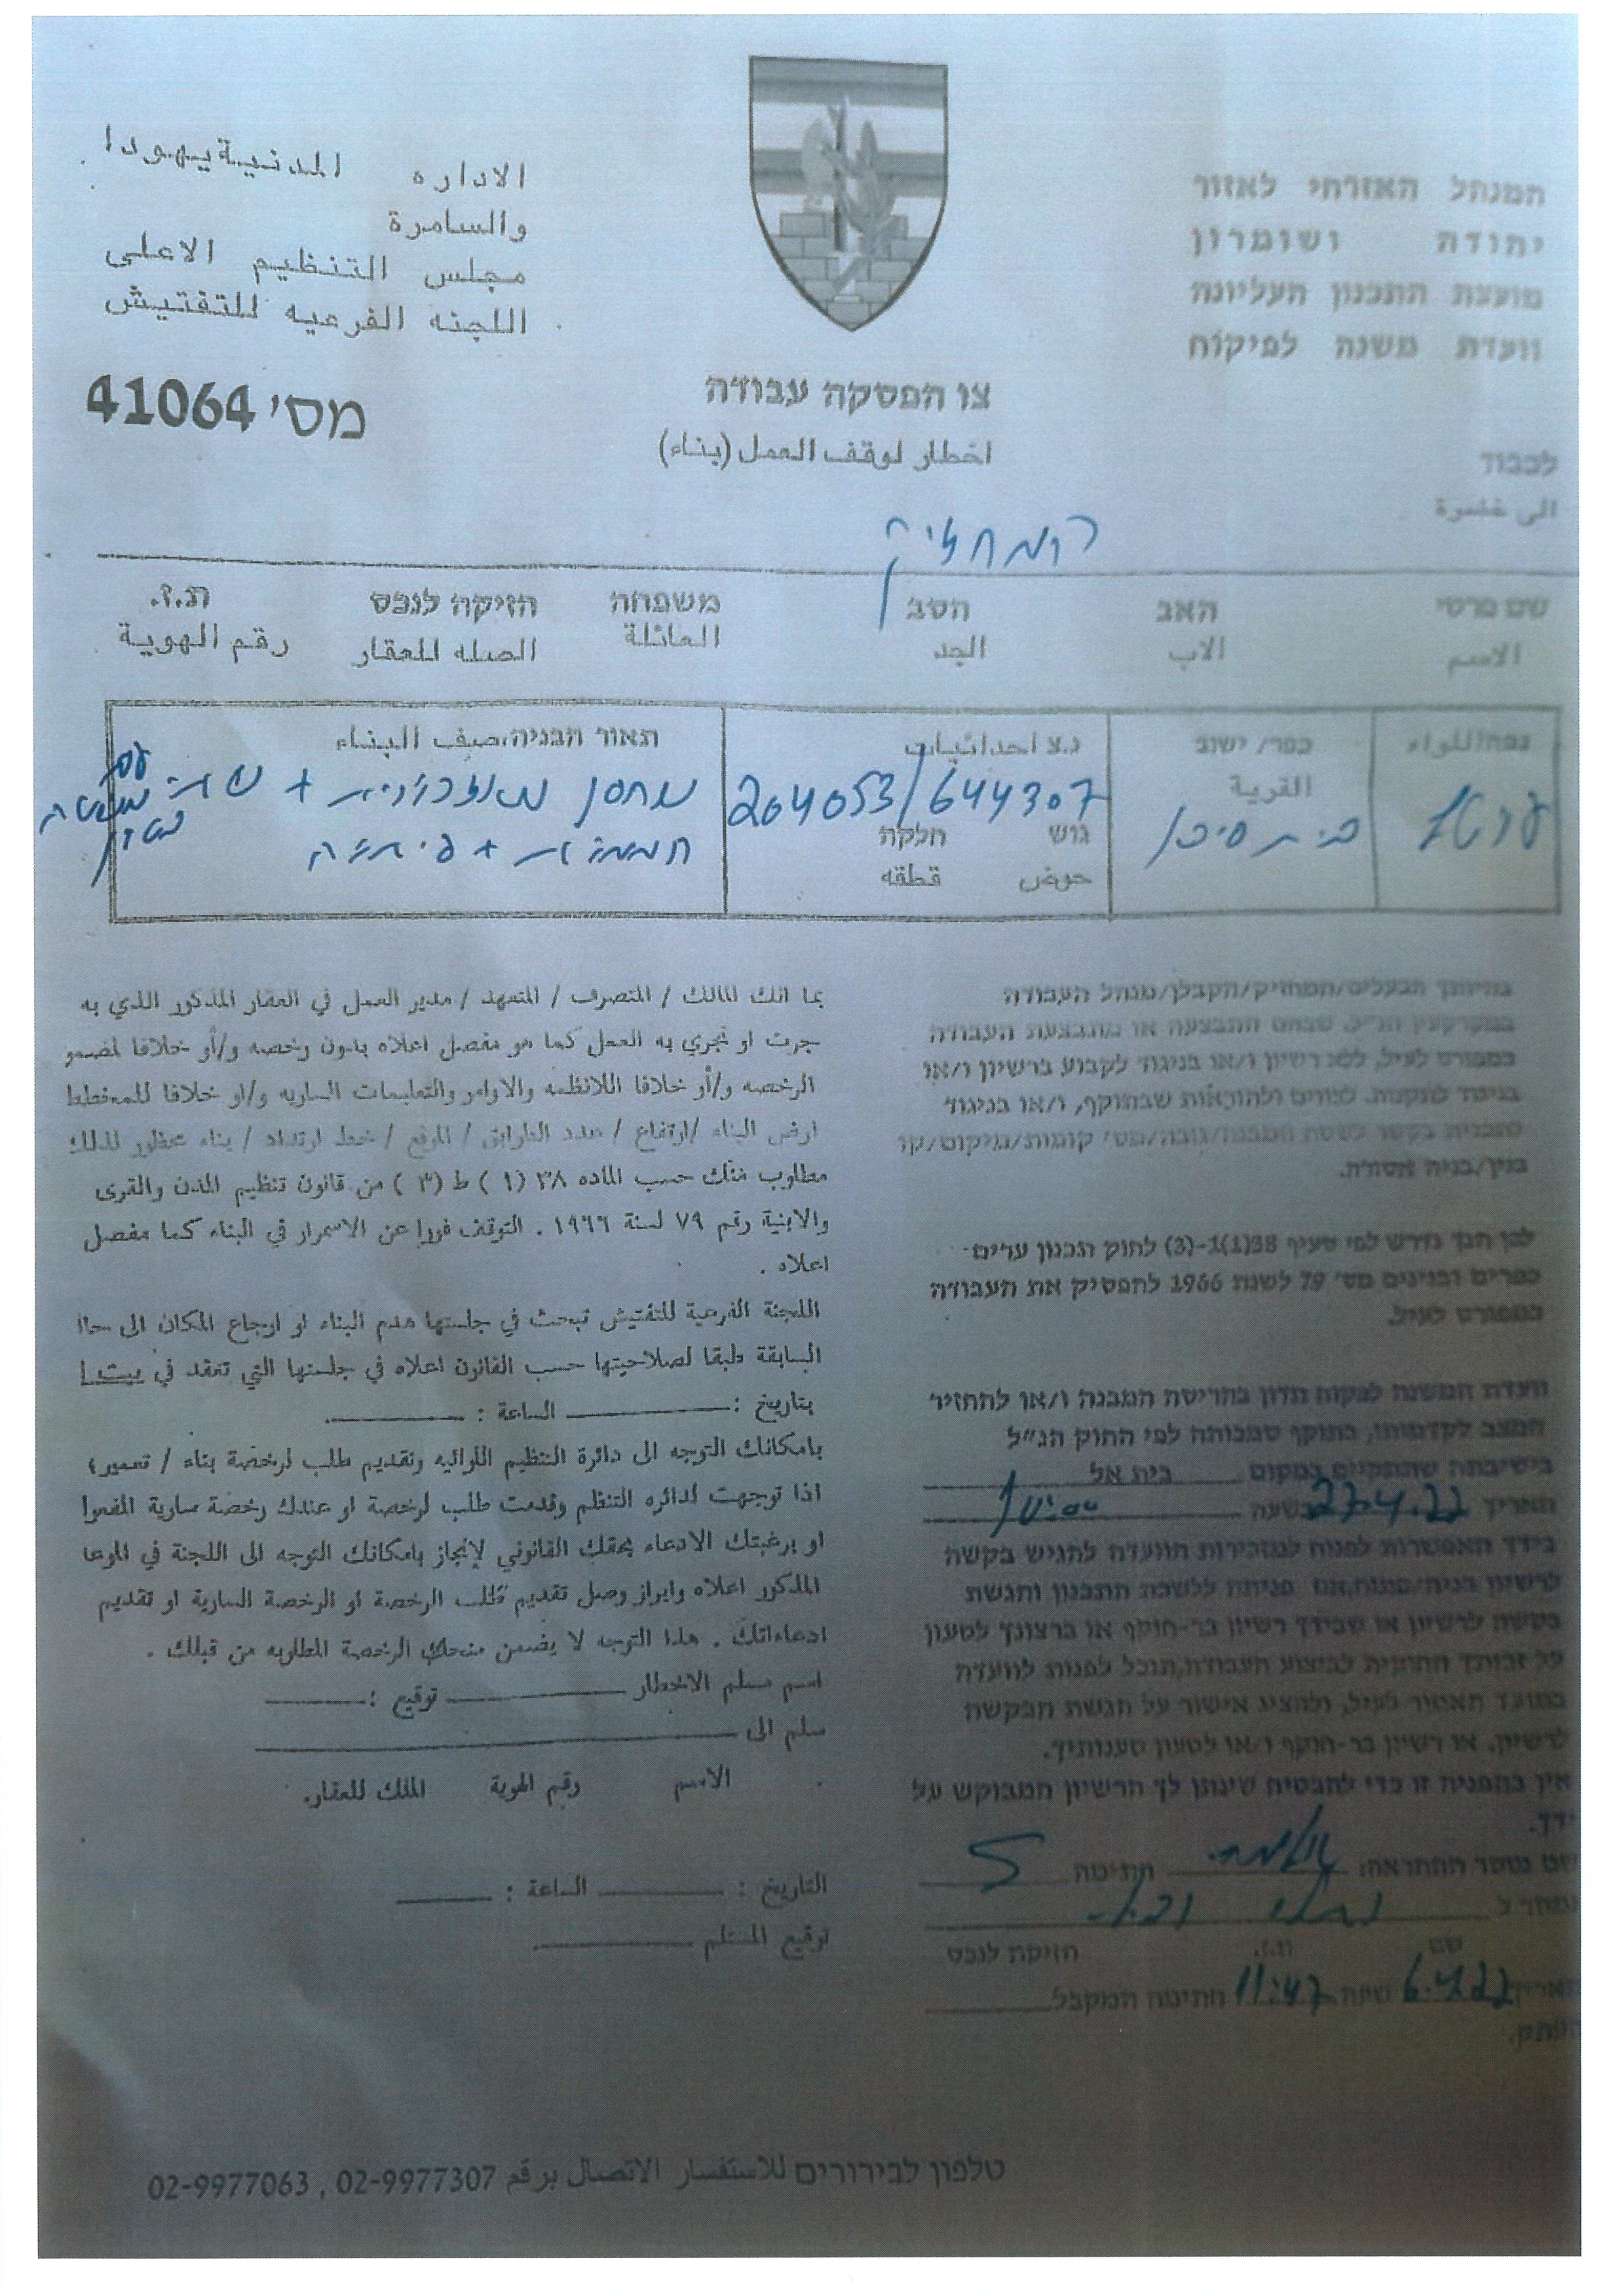 המנהל האזרחי לאזור
יהודה ושומרון
מועצת התכנון העליונה
וועדת משנה לפיקוח
الاداره المدنية يهودا
والسامرة
مجلس التنظيم الاعلى
اللجنه الفرعيه للتفتيش
מס' 41064
צו הפסקה עבודה
اخطار لوقف العمل (بناء)
לכבוד
الى حضرة
המחזיק
שם פרטי האב הסב משפחה הזיקה לנכס ת.ז.
الاسم الاب الجد العائلة الصله للعقار رقم الهوية
נפה/اللواء כפר/ ישוב נ.צ احداثيات תאור הבניה،صيف البناء
القرية
204053/644307
גוש חלקה
حوض قطقه
בהיותך הבעלים/המחזיק/הקבלן/מנהל העבודה
במקרקעין הנ"ל, שבהם התבצעה או מתבצעת העבודה
כמפורט לעיל, ללא רשיון ו/או בניגוד לקבוע ברשיון ו/או
בניגוד לתקנות, לצווים ולהוראות שבתוקף, ו/או בניגוד
בנין/בניה אסורה.
לכן הנך נדרש לפי סעיף 38(1)1-(3) לחוק תכנון ערים
כפרים ובנינים מס' 79 לשנת 1966 להפסיק את העבודה
כמפורט לעיל.
וועדת המשנה לפקוח תדון בהריסת המבנה ו/או להחזיר
המצב לקדמותו, בתוקף סמכותה לפי החוק הנ"ל
בישיבתה שתתקיים במקום בית אל
תאריך 27.4.22 בשעה
בידך האפשרות לפנות למזכירות הוועדה להגיש בקשה
לרשיון בניה/פתוח,אם פניתה ללשכת התכנון והגשת
בקשה לרשיון או שבידך רשיון בר-תוקף או ברצונך לטעון
על זכותך החוקית לביצוע העבודה,תוכל לפנות לוועדה
במועד האמור לעיל, ולהציג אישור על הגשת הבקשה
לרשיון, או רשיון בר-תוקף ו/או לטעון טענותיך.
אין בהפניה זו כדי להבטיח שינתן לך הרשיון המבוקש על
ידך.
שם מוסר ההתראה: חתימה
נמסר ל
שם ת.ז. הזיקה לנכס
תאריך 6.4.22 שעה 11:47 חתימת המקבל
העתק.
بما انك المالك / المتصرف / المتعهد / مدير العمل في العقار المذكور الذي به
جرت او تجري به العمل كما هو مفصل اعلاه بدون رخصه و/أو خلافا لمضمو
الرخصه و/أو خلافا للانظمه والاوامر والتعليمات الساريه و/او خلافا للمخطط
ارض البناء /ارتفاع / عدد الطوابق / الموقع / خط ارتداد / بناء محظور لذلك
مطلوب منك حسب الماده ٣٨ (١ ) ط (٣ ) من قانون تنظيم المدن والقرى
والابنية رقم ٧٩ لسنة ١٩٦٦ . التوقف فورا عن الاسمرار في البناء كما مفصل
اعلاه .
اللجنة الفرعية للتفتيش تبحث في جلستها هدم البناء او ارجاع المكان الى حالا
السابقة طبقا لصلاحيتها حسب القانون اعلاه في جلستها التي تعقد في
بتاريخ : الساعة :
بامكانك التوجه الى دائرة التنظيم اللوائيه وتقديم طلب لرخصة بناء /
اذا توجهت لدائره التنظم وقدمت طلب لرخصة او عندك رخصة سارية المفعوا
او برغبتك الادعاء بحقك القانوني لإنجاز بامكانك التوجه الى اللجنة في الموعا
المذكور اعلاه وابراز وصل تقديم طلب الرخصة او الرخصة السارية او تقديم
ادعاءاتك . هذا التوجه لا يضمن منحك الرخصة المطلوبه من قبلك .
اسم مسلم الاخطار توقيع :
سلم الى
الاسم رقم الهوية الملك للعقار.
التاريخ : الساعة :
توقيع المستلم
טלפון לבירורים للاستفسار الاتصال برقم 02-9977307 , 02-9977063